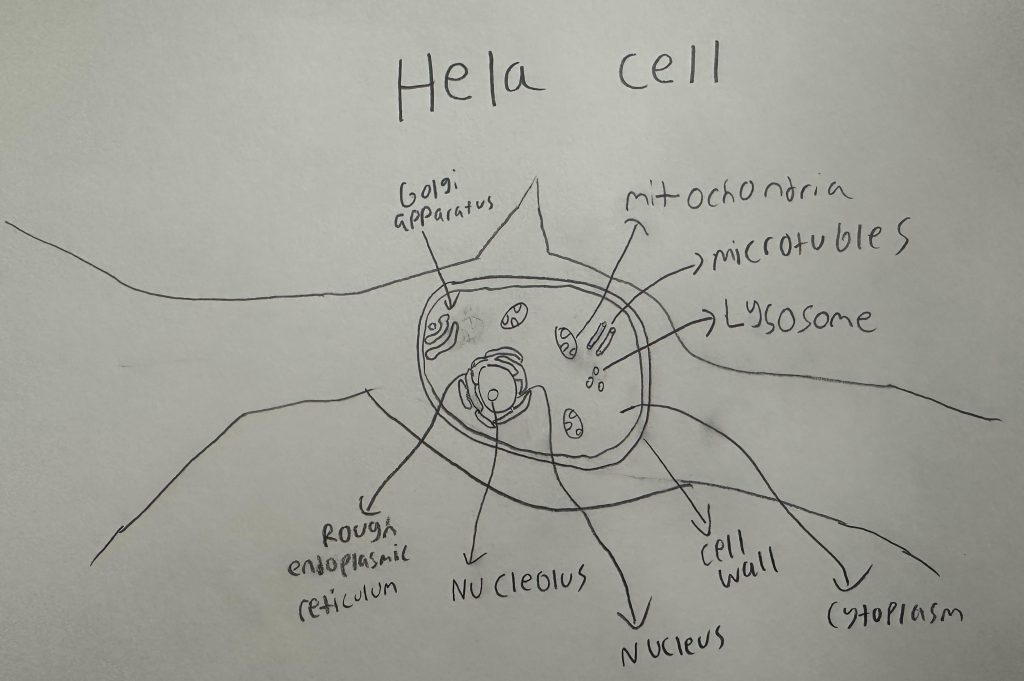 Hela cell
Golgi
apparatus
mitochondria
microtubles
Lysosome
Rough
endoplasmic
reticulum
Nucleolus
Nucleus
cell
wall
Cytoplasm